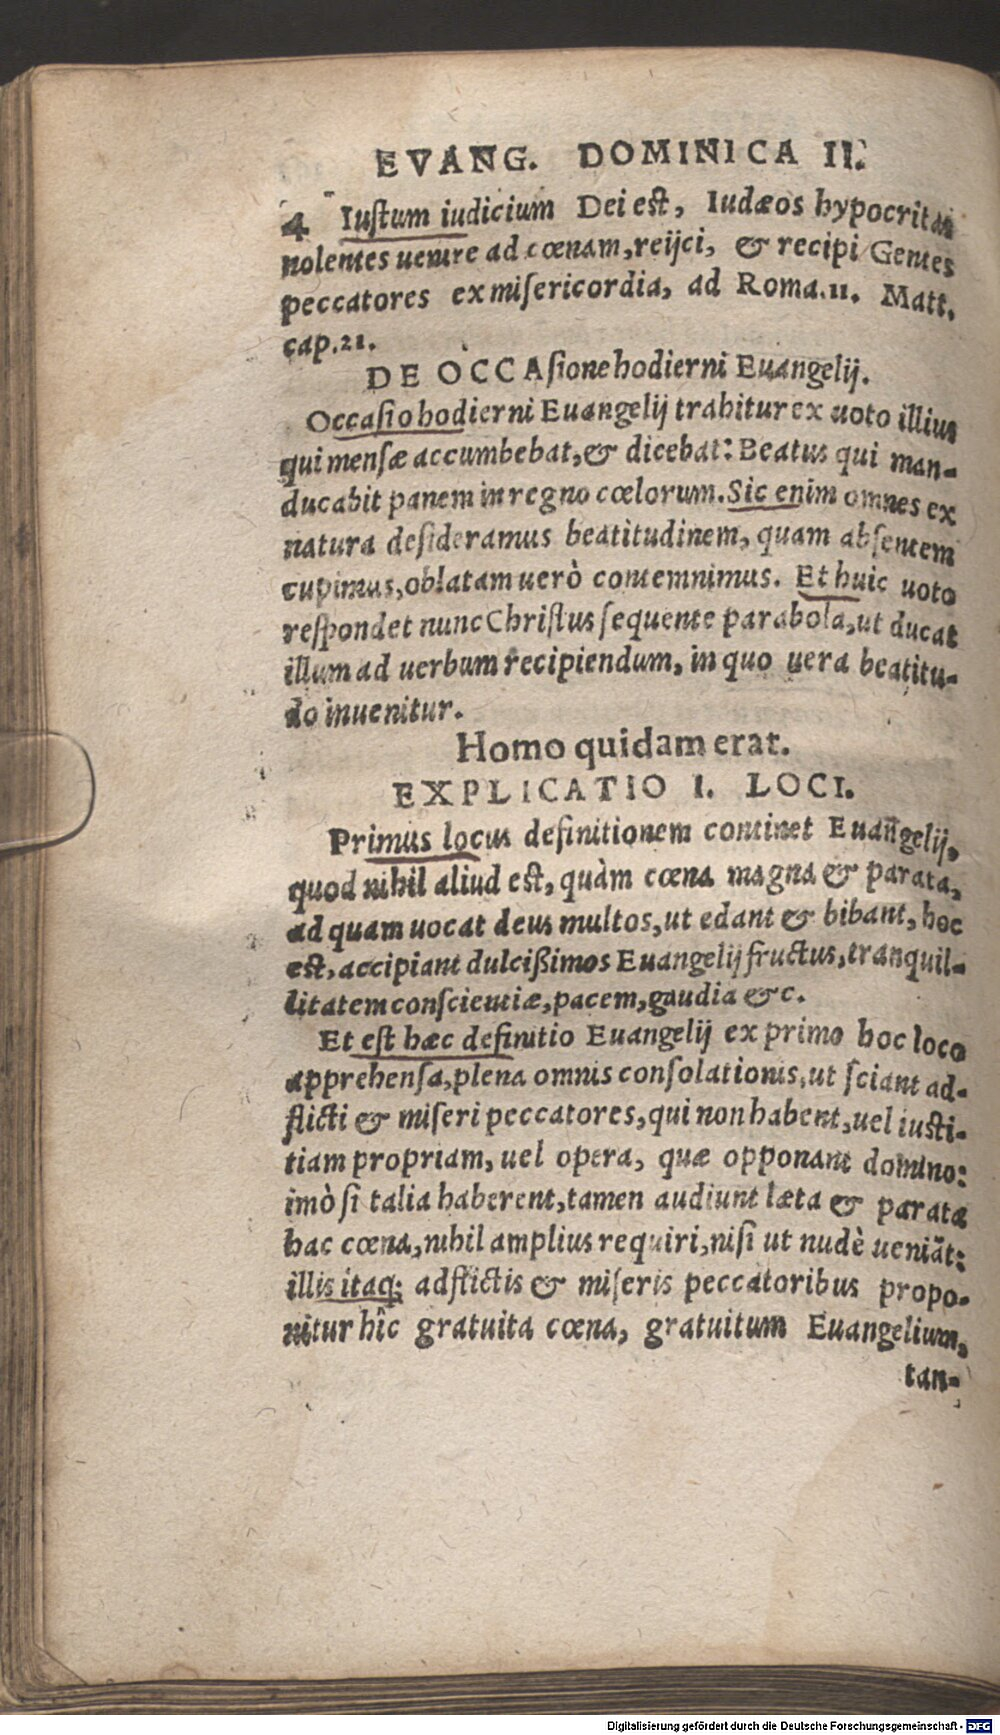 EVANG. DOMINICA II.
4 Iustum iudicium Dei est, Iudæos hypocritas
nolentes uenire ad cœnam, reijci, & recipi Gentes
peccatores ex misericordia, ad Roma.11. Matt.
cap.21.
DE OCCAsione hodierni Euangelij.
Occasio hodierni Euangelij trahitur ex uoto illius
qui mensæ accumbebat, & dicebat: Beatus qui man-
ducabit panem in regno cœlorum. Sic enim omnes ex
natura desideramus beatitudinem, quam absentem
cupimus, oblatam uerò contemnimus. Et huic uoto
respondet nunc Christus sequente parabola, ut ducat
illum ad uerbum recipiendum, in quo uera beatitu-
do inuenitur.
Homo quidam erat.
EXPLICATIO I. LOCI.
Primus locus definitionem continet Euangelij,
quod nihil aliud est, quàm cœna magna & parata,
ad quam uocat deus multos, ut edant & bibant, hoc
est, accipiant dulcißimos Euangelij fructus, tranquil-
litatem conscientiæ, pacem, gaudia &c.
Et est hæc definitio Euangelij ex primo hoc loco
apprehensa, plena omnis consolationis, ut sciant ad-
flicti & miseri peccatores, qui non habent, uel iusti-
tiam propriam, uel opera, quæ opponant domino:
imò si talia haberent, tamen audiunt læta & parata
hac cœna, nihil amplius requiri, nisi ut nudè ueniãt:
illis itaq; adflictis & miseris peccatoribus propo-
nitur hîc gratuita cœna, gratuitum Euangelium,
tan-
Digitalisierung gefördert durch die Deutsche Forschungsgemeinschaft - DFG